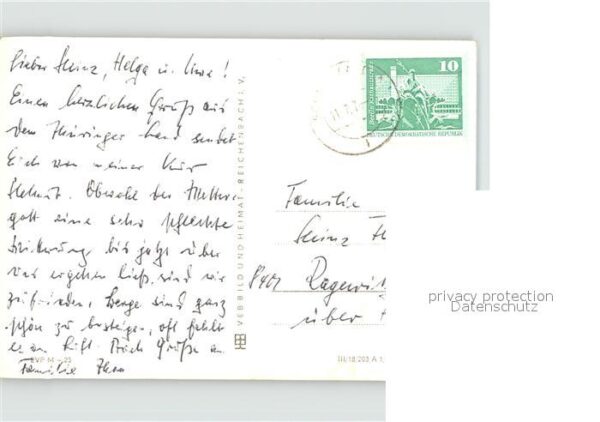 Lieber Heinz, Helga u. Uwe!
Einen herzlichen Gruß aus
dem Thüringer Land sendet
Euch von meiner Kur
Helmut. Obwohl der Wetter-
gott eine sehr schlechte
bis jetzt über
uns ergehen ließ, sind wir
zufrieden. Berge sind ganz
schön zu besteigen, oft fehlt
es an Luft. Grüße an
Familie
EVP M -,25
VEB BILD UND HEIMAT · REICHENBACH I. V.
III/18/203 A 1
10
Berlin, Rathauspassagen
DEUTSCHE DEMOKRATISCHE REPUBLIK
Familie
Heinz
8401 Ragewitz
über
privacy protection
Datenschutz